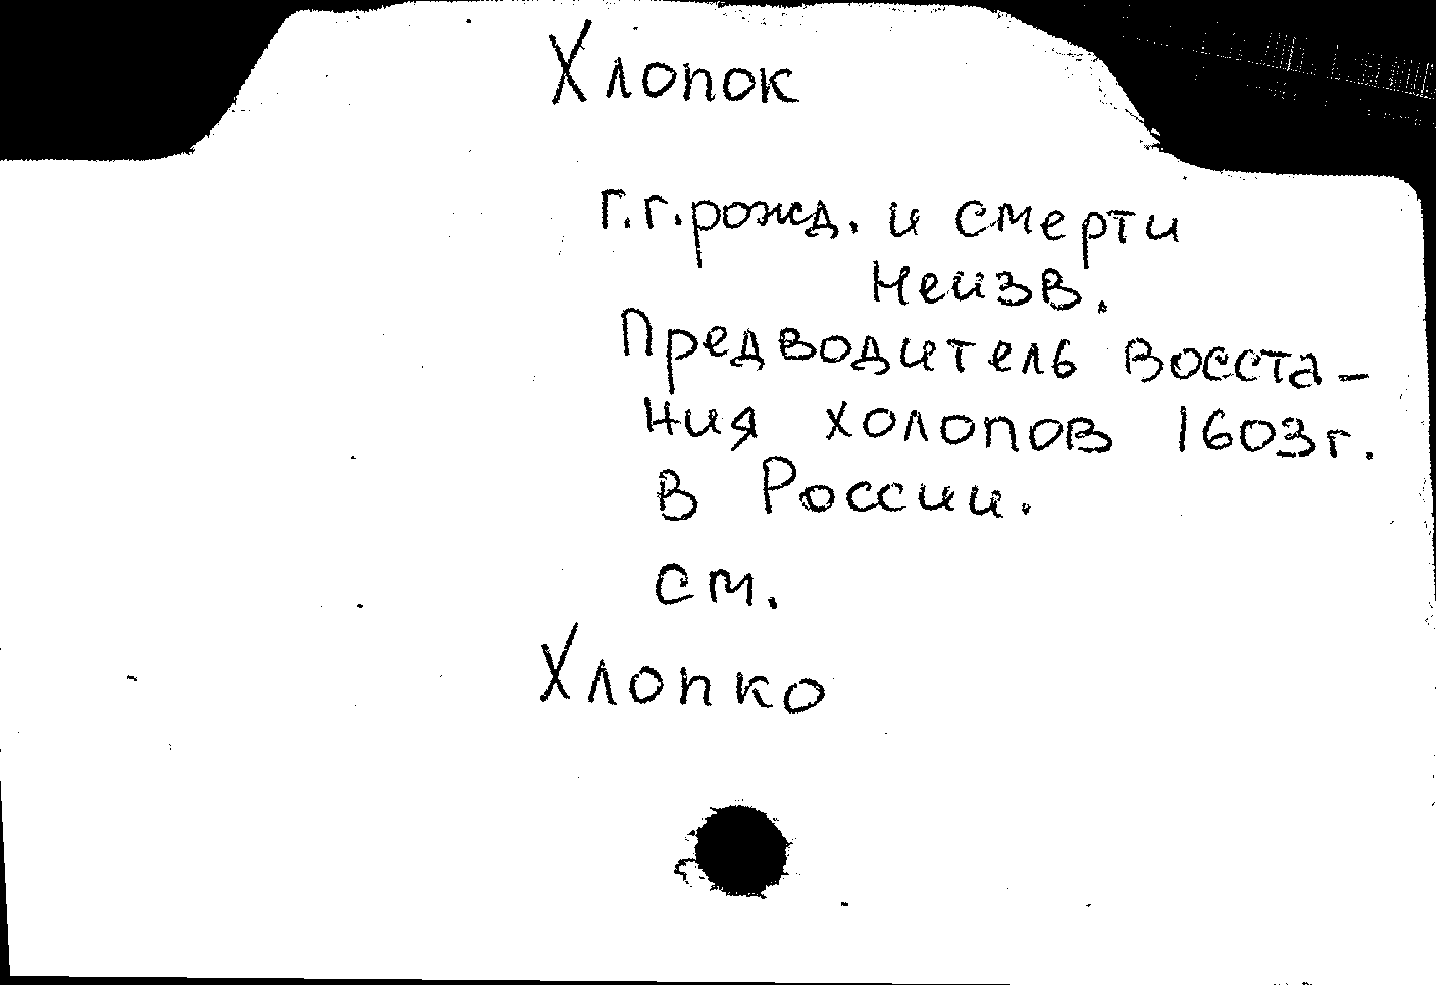 Хлопок
г.г.рожд. и смерти
неизв.
Предводитель восста-
ния холопов 1603г.
в России.
см.
Хлопко